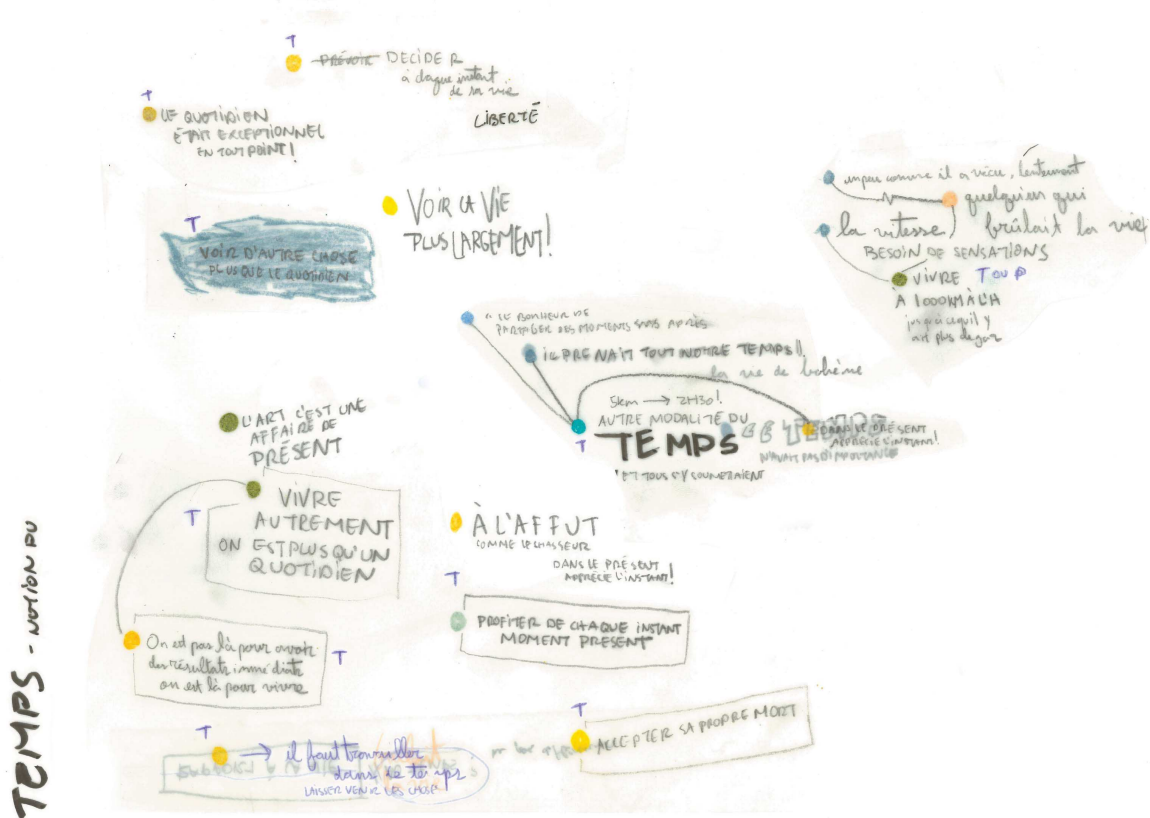 T
PRÉVOIR DECIDER
à chaque instant
de sa vie
LIBERTÉ
T
LE QUOTIDIEN
ÉTAIT EXCEPTIONNEL
EN TOUT POINT!
T
VOIR D'AUTRE CHOSE
PLUS QUE LE QUOTIDIEN
VOIR LA VIE
PLUS LARGEMENT!
un peu comme il a vécu, lentement
quelqu'un qui
brûlait la vie
la vitesse)
BESOIN DE SENSATIONS
VIVRE T OU P
À 1000KM À L'H
jusqu'à ce qu'il y
ait plus de gaz
LE BONHEUR DE
PARTAGER DES MOMENTS SANS APRÈS
IL PRENAIT TOUT NOTRE TEMPS!
la vie de bohème
5km → 2H30!
AUTRE MODALITÉ DU
T
TEMPS
ET TOUS S'Y SOUMETTAIENT
LE TEMPS
N'AVAIT PAS D'IMPORTANCE
DANS LE PRÉSENT
APPRÉCIE L'INSTANT!
L'ART C'EST UNE
AFFAIRE DE
PRÉSENT
T
VIVRE
AUTREMENT
ON EST PLUS QU'UN
QUOTIDIEN
À L'AFFUT
COMME LE CHASSEUR
DANS LE PRÉSENT
APPRÉCIE L'INSTANT!
T
PROFITER DE CHAQUE INSTANT
MOMENT PRESENT
On est pas là pour avoir
des résultats immédiats
on est là pour vivre
T
T
→ il faut travailler
dans le temps
LAISSER VENIR LES CHOSE
T
ACCEPTER SA PROPRE MORT
TEMPS - NOTION DU